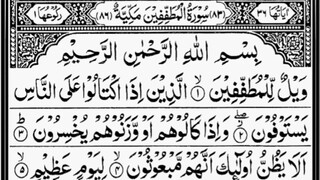 اٰیاتها ٣٦ (٨٣) سُوْرَةُ الْمُطَفِّفِيْنَ مَكِّيَّةٌ (٨٦) رکوعها ١
بِسْمِ اللّٰهِ الرَّحْمٰنِ الرَّحِيْمِ
وَيْلٌ لِّلْمُطَفِّفِيْنَ ۙ﴿١﴾ الَّذِيْنَ اِذَا اكْتَالُوْا عَلَى النَّاسِ
يَسْتَوْفُوْنَ ۖ﴿٢﴾ وَاِذَا كَالُوْهُمْ اَوْ وَّزَنُوْهُمْ يُخْسِرُوْنَ ؕ﴿٣﴾
اَلَا يَظُنُّ اُولٰٓئِكَ اَنَّهُمْ مَّبْعُوْثُوْنَ ۙ﴿٤﴾ لِيَوْمٍ عَظِيْمٍ ۙ﴿٥﴾